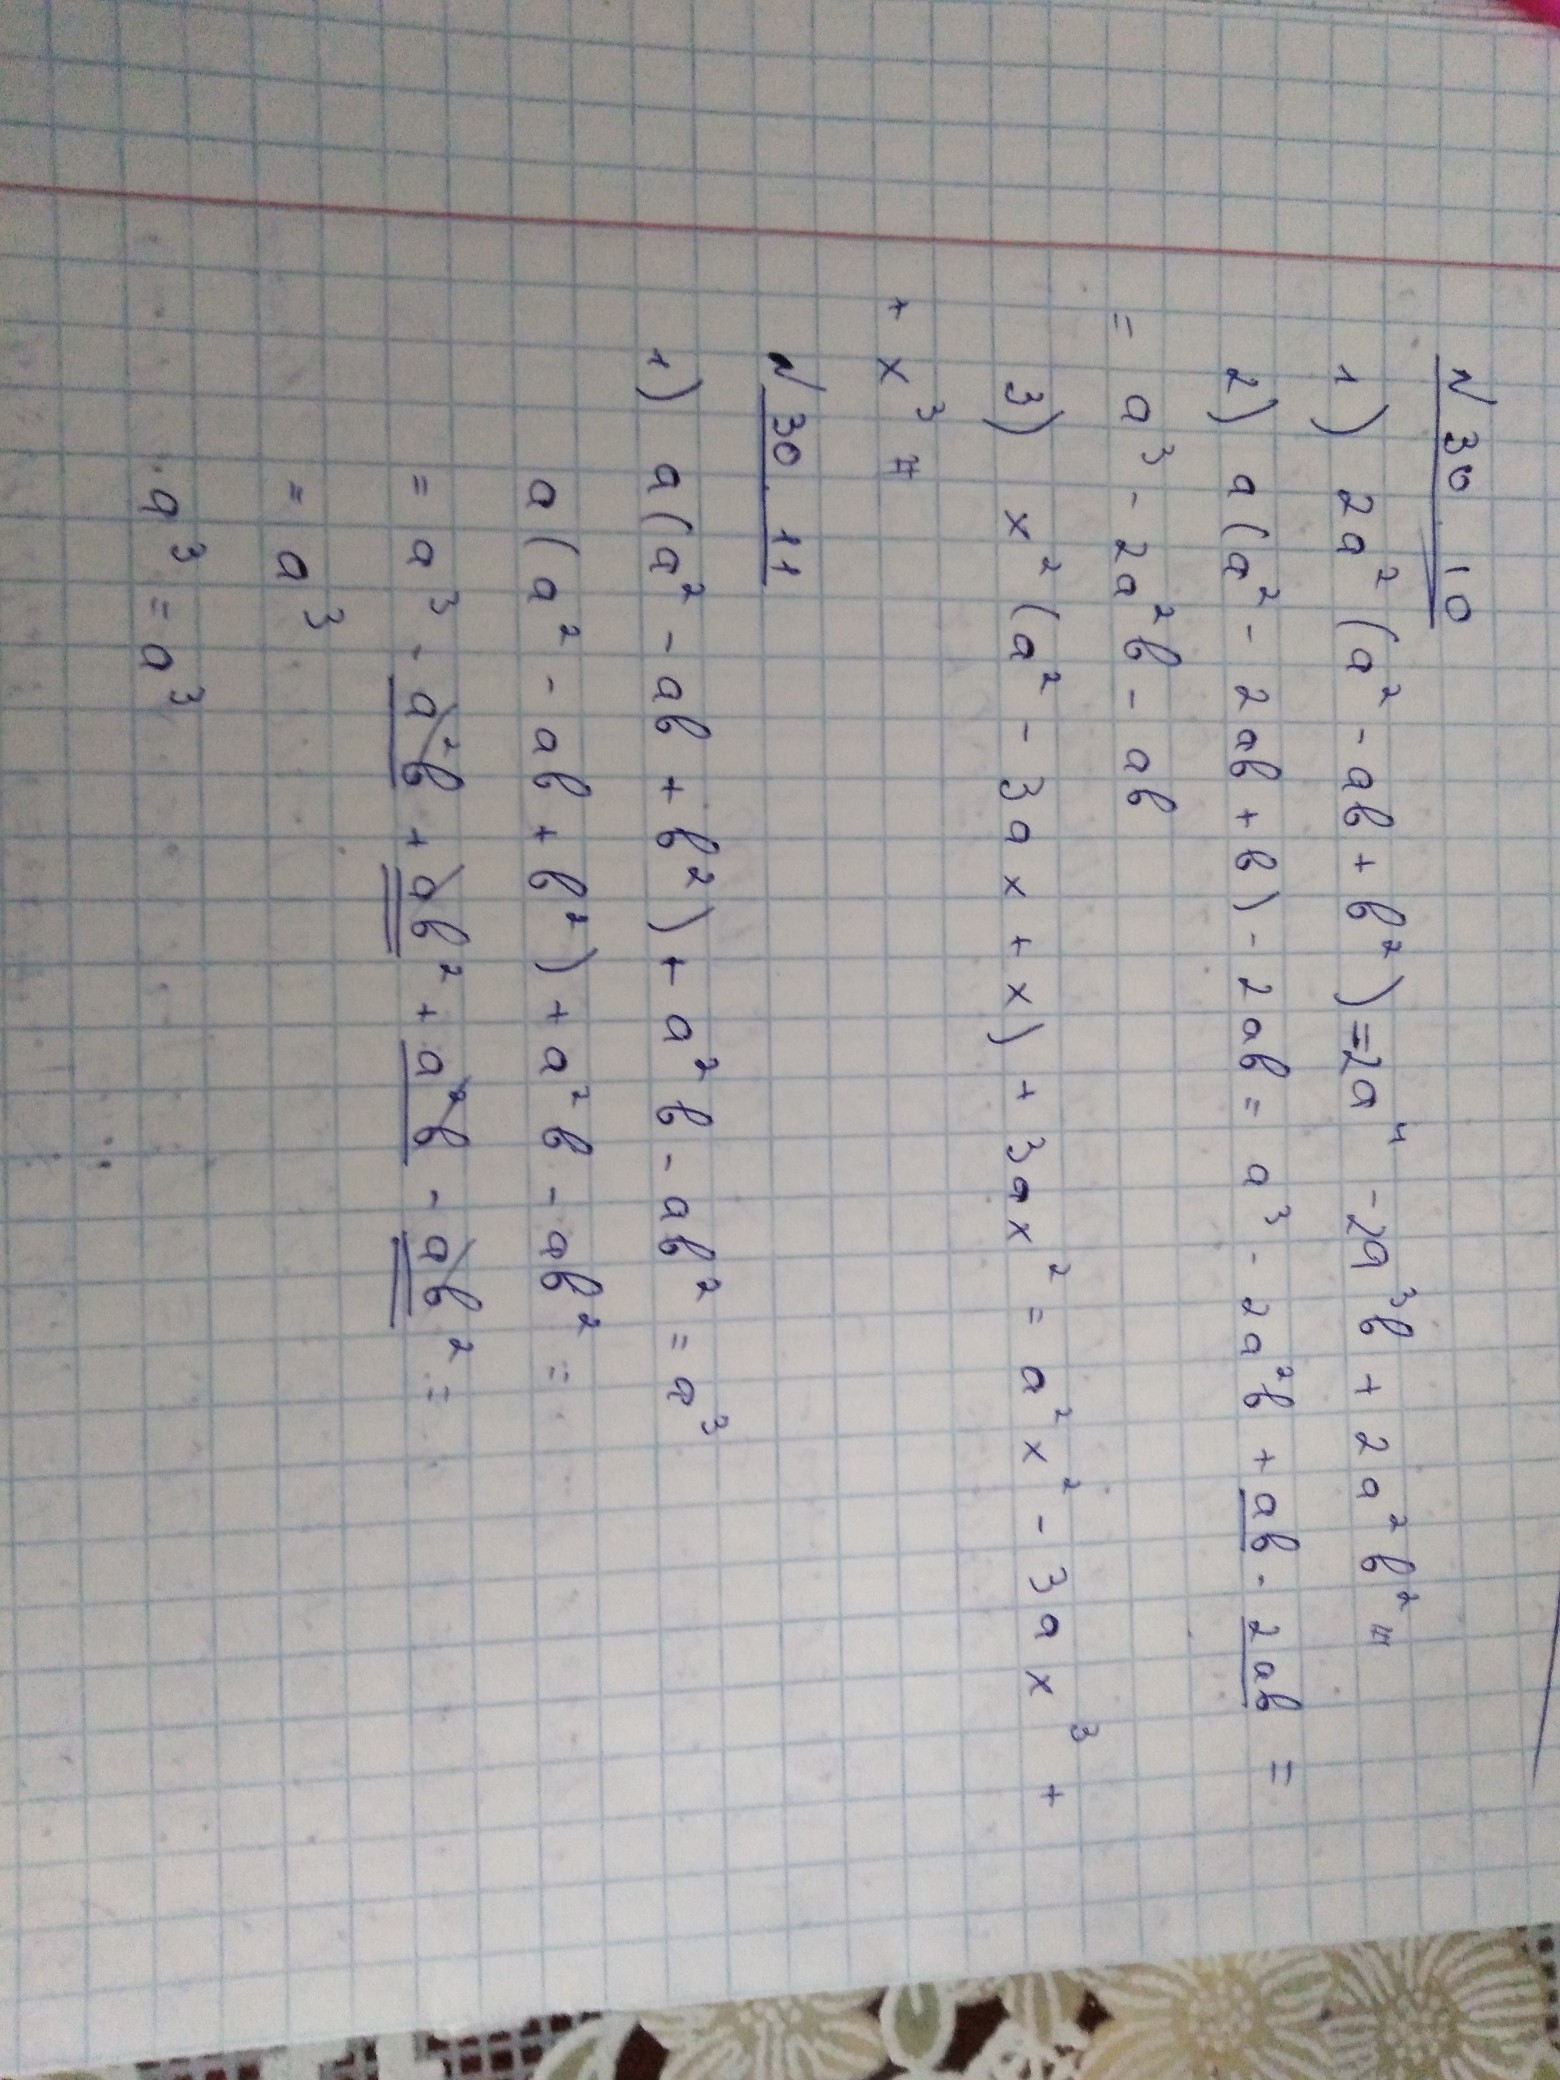 № 30.10
1) 2a² (a² - ab + b²) = 2a⁴ - 2a³b + 2a²b²
2) a (a² - 2ab + b) - 2ab = a³ - 2a²b + ab - 2ab =
= a³ - 2a²b - ab
3) x² (a² - 3ax + x) + 3ax² = a²x² - 3ax³ +
+ x³
№ 30.11
1) a (a² - ab + b²) + a²b - ab² = a³
a (a² - ab + b²) + a²b - ab² =
= a³ - a²b + ab² + a²b - ab² =
= a³
a³ = a³